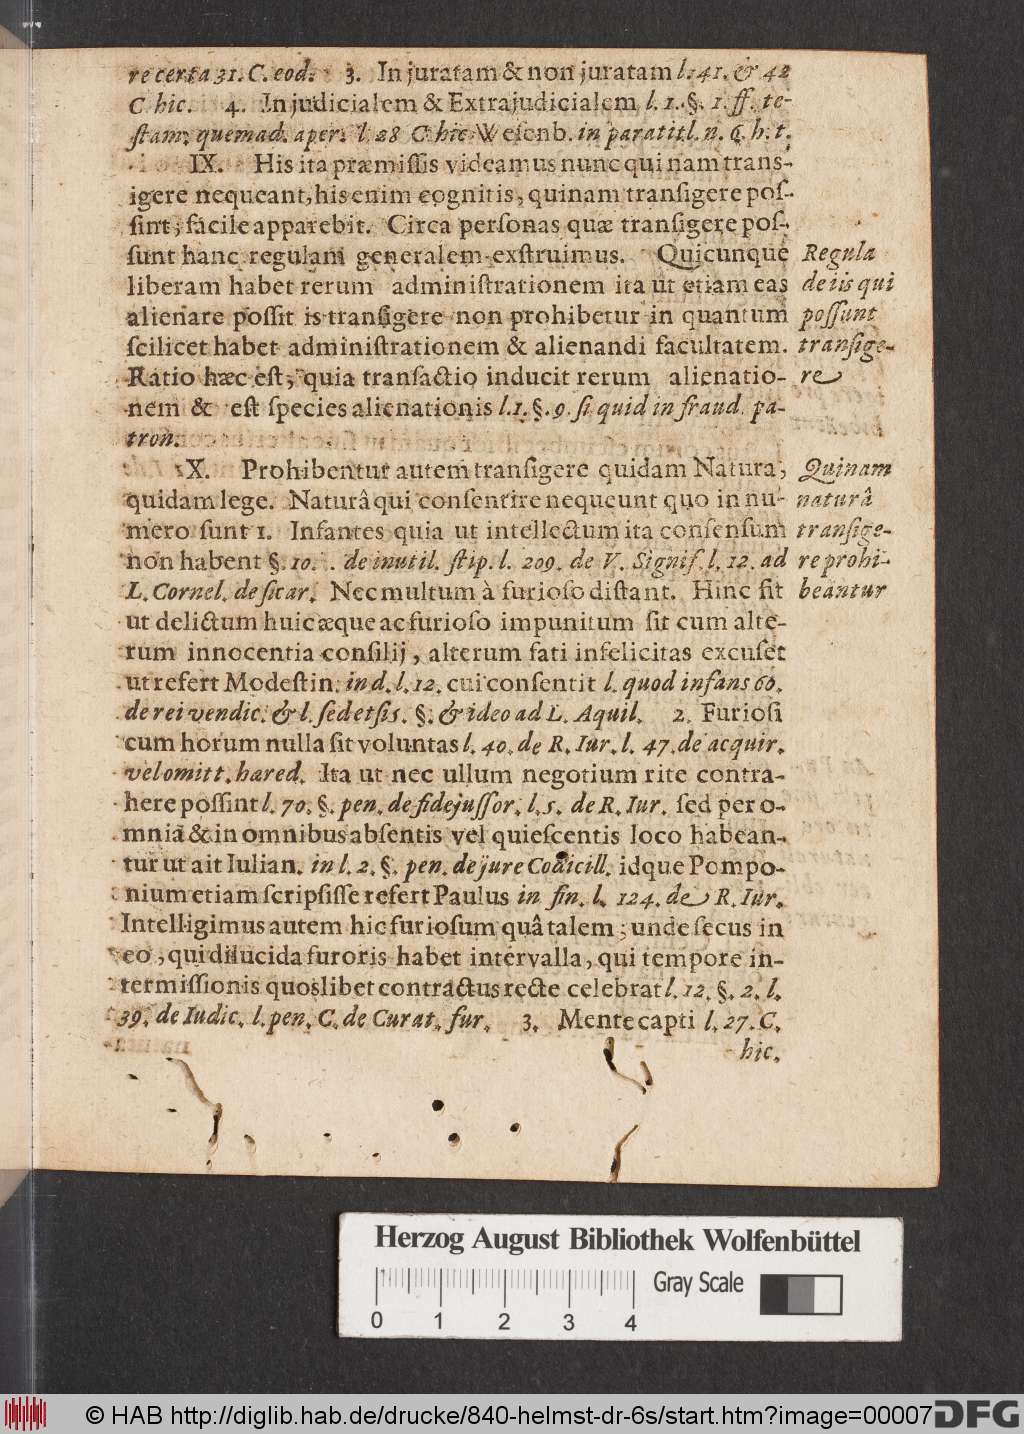 re certa 31. C. eod. 3. In juratam & non juratam l. 41. & 42
C hic. 4. In judicialem & Extrajudicialem l. 1. §. 1. ff. te-
stam. quemad. aper. l. 28 C hic Wesenb. in paratitl. n. 6. h. t.
IX. His ita præmissis videamus nunc qui nam trans-
igere nequeant, his enim cognitis, quinam transigere pos-
sint, facile apparebit. Circa personas quæ transigere pos-
sunt hanc regulam generalem exstruimus. Quicunque
liberam habet rerum administrationem ita ut etiam eas
alienare possit is transigere non prohibetur in quantum
scilicet habet administrationem & alienandi facultatem.
Ratio hæc est, quia transactio inducit rerum alienatio-
nem & est species alienationis l. 1. §. 9. si quid in fraud. pa-
tron.
Regula
de iis qui
possunt
transige-
re
X. Prohibentur autem transigere quidam Natura,
quidam lege. Naturâ qui consentire nequeunt quo in nu-
mero sunt 1. Infantes quia ut intellectum ita consensum
non habent §. 10. . de inutil. stip. l. 209. de V. Signif. l. 12. ad
L. Cornel. de sicar. Nec multum à furioso distant. Hinc fit
ut delictum huic æque ac furioso impunitum sit cum alte-
rum innocentia consilij, alterum fati infelicitas excuset
ut refert Modestin. in d. l. 12. cui consentit l. quod infans 60.
de rei vendic. & l. sed etsi 5. §. & ideo ad L. Aquil. 2. Furiosi
cum horum nulla sit voluntas l. 40. de R. Iur. l. 47. de acquir.
vel omitt. hared. Ita ut nec ullum negotium rite contra-
here possint l. 70. §. pen. de fidejussor. l. 5. de R. Iur. sed per o-
mnia & in omnibus absentis vel quiescentis loco habean-
tur ut ait Iulian. in l. 2. §. pen. de jure Codicill. idque Pompo-
nium etiam scripsisse refert Paulus in fin. l. 124. de R. Iur.
Intelligimus autem hic furiosum quâ talem; unde secus in
eo, qui dilucida furoris habet intervalla, qui tempore in-
termissionis quoslibet contractus recte celebrat l. 12. §. 2. l.
39. de Iudic. l. pen. C. de Curat. fur. 3. Mente capti l. 27. C.
hic.
Quinam
naturâ
transige-
re prohi-
beantur
Herzog August Bibliothek Wolfenbüttel
Gray Scale
0 1 2 3 4
© HAB http://diglib.hab.de/drucke/840-helmst-dr-6s/start.htm?image=00007
DFG